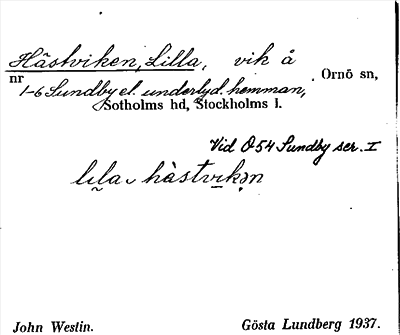 Hästviken, Lilla, vik å
nr Ornö sn,
1-6 Sundby el. underlyd. hemman,
Sotholms hd, Stockholms l.
Vid Ö54 Sundby ser. I
lila hàstvikən
John Westin. Gösta Lundberg 1937.